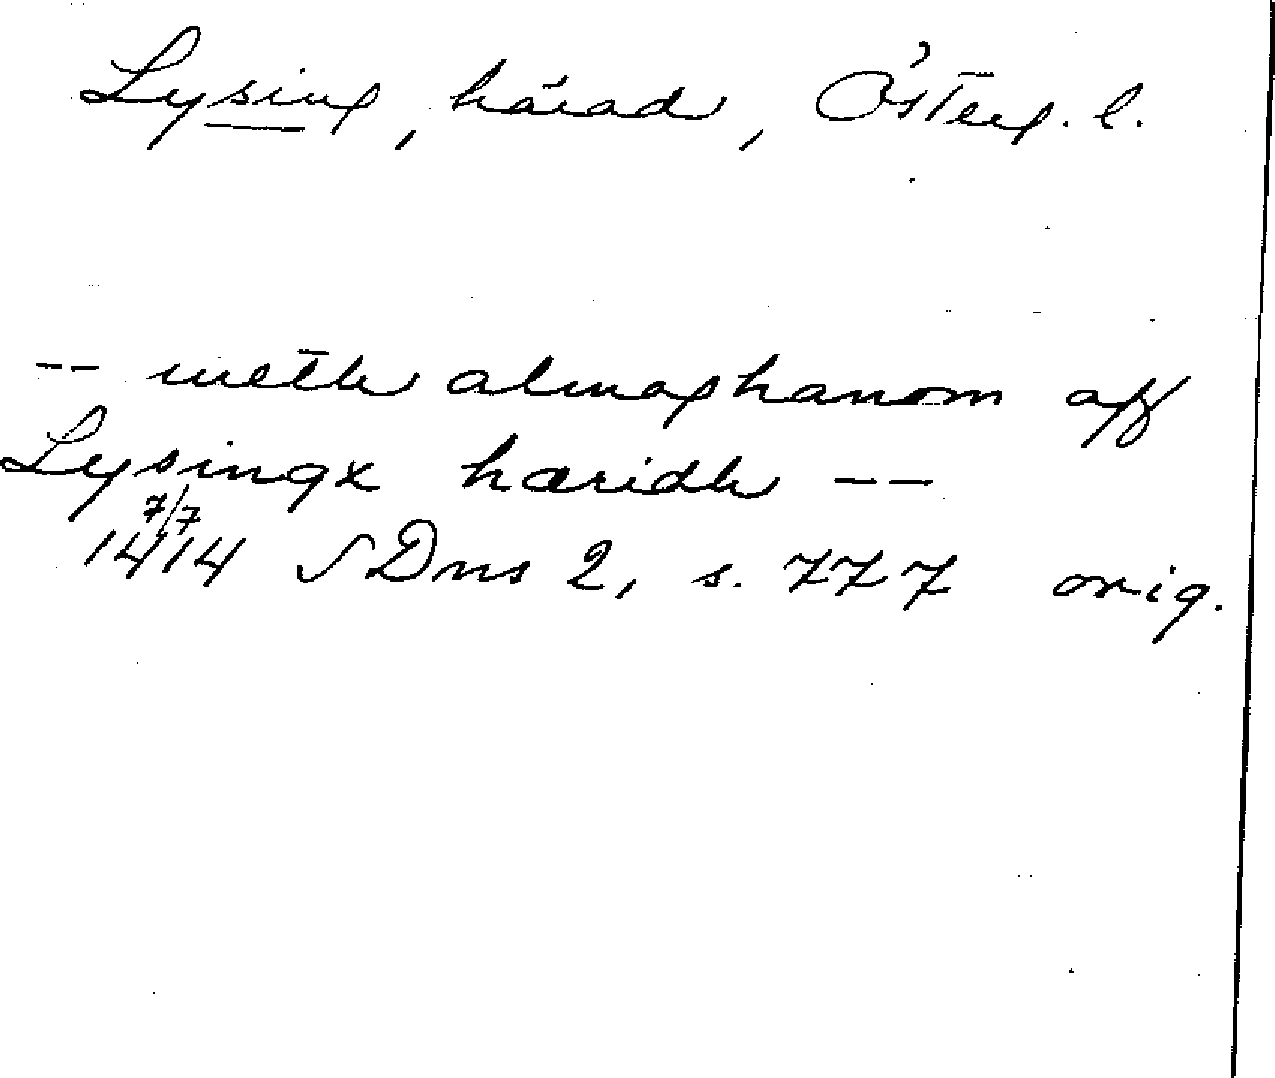 Lysing, härad, Österg. l.
-- meth almoghanom aff
Lysingx hæridh --
7/7
1414 SDns 2, s. 777 orig.